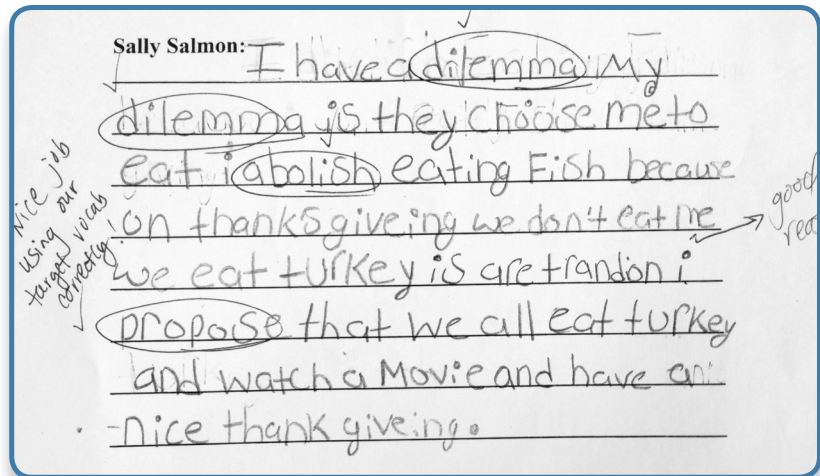 Sally Salmon: I have a dilemma My
dilemma is they choose me to
eat i abolish eating Fish because
on thanksgiveing we don't eat me
we eat turkey is are trandon i
propose that we all eat turkey
and watch a Movie and have an
nice thank giveing.
Nice job
using our
target vocab
correctly!
good